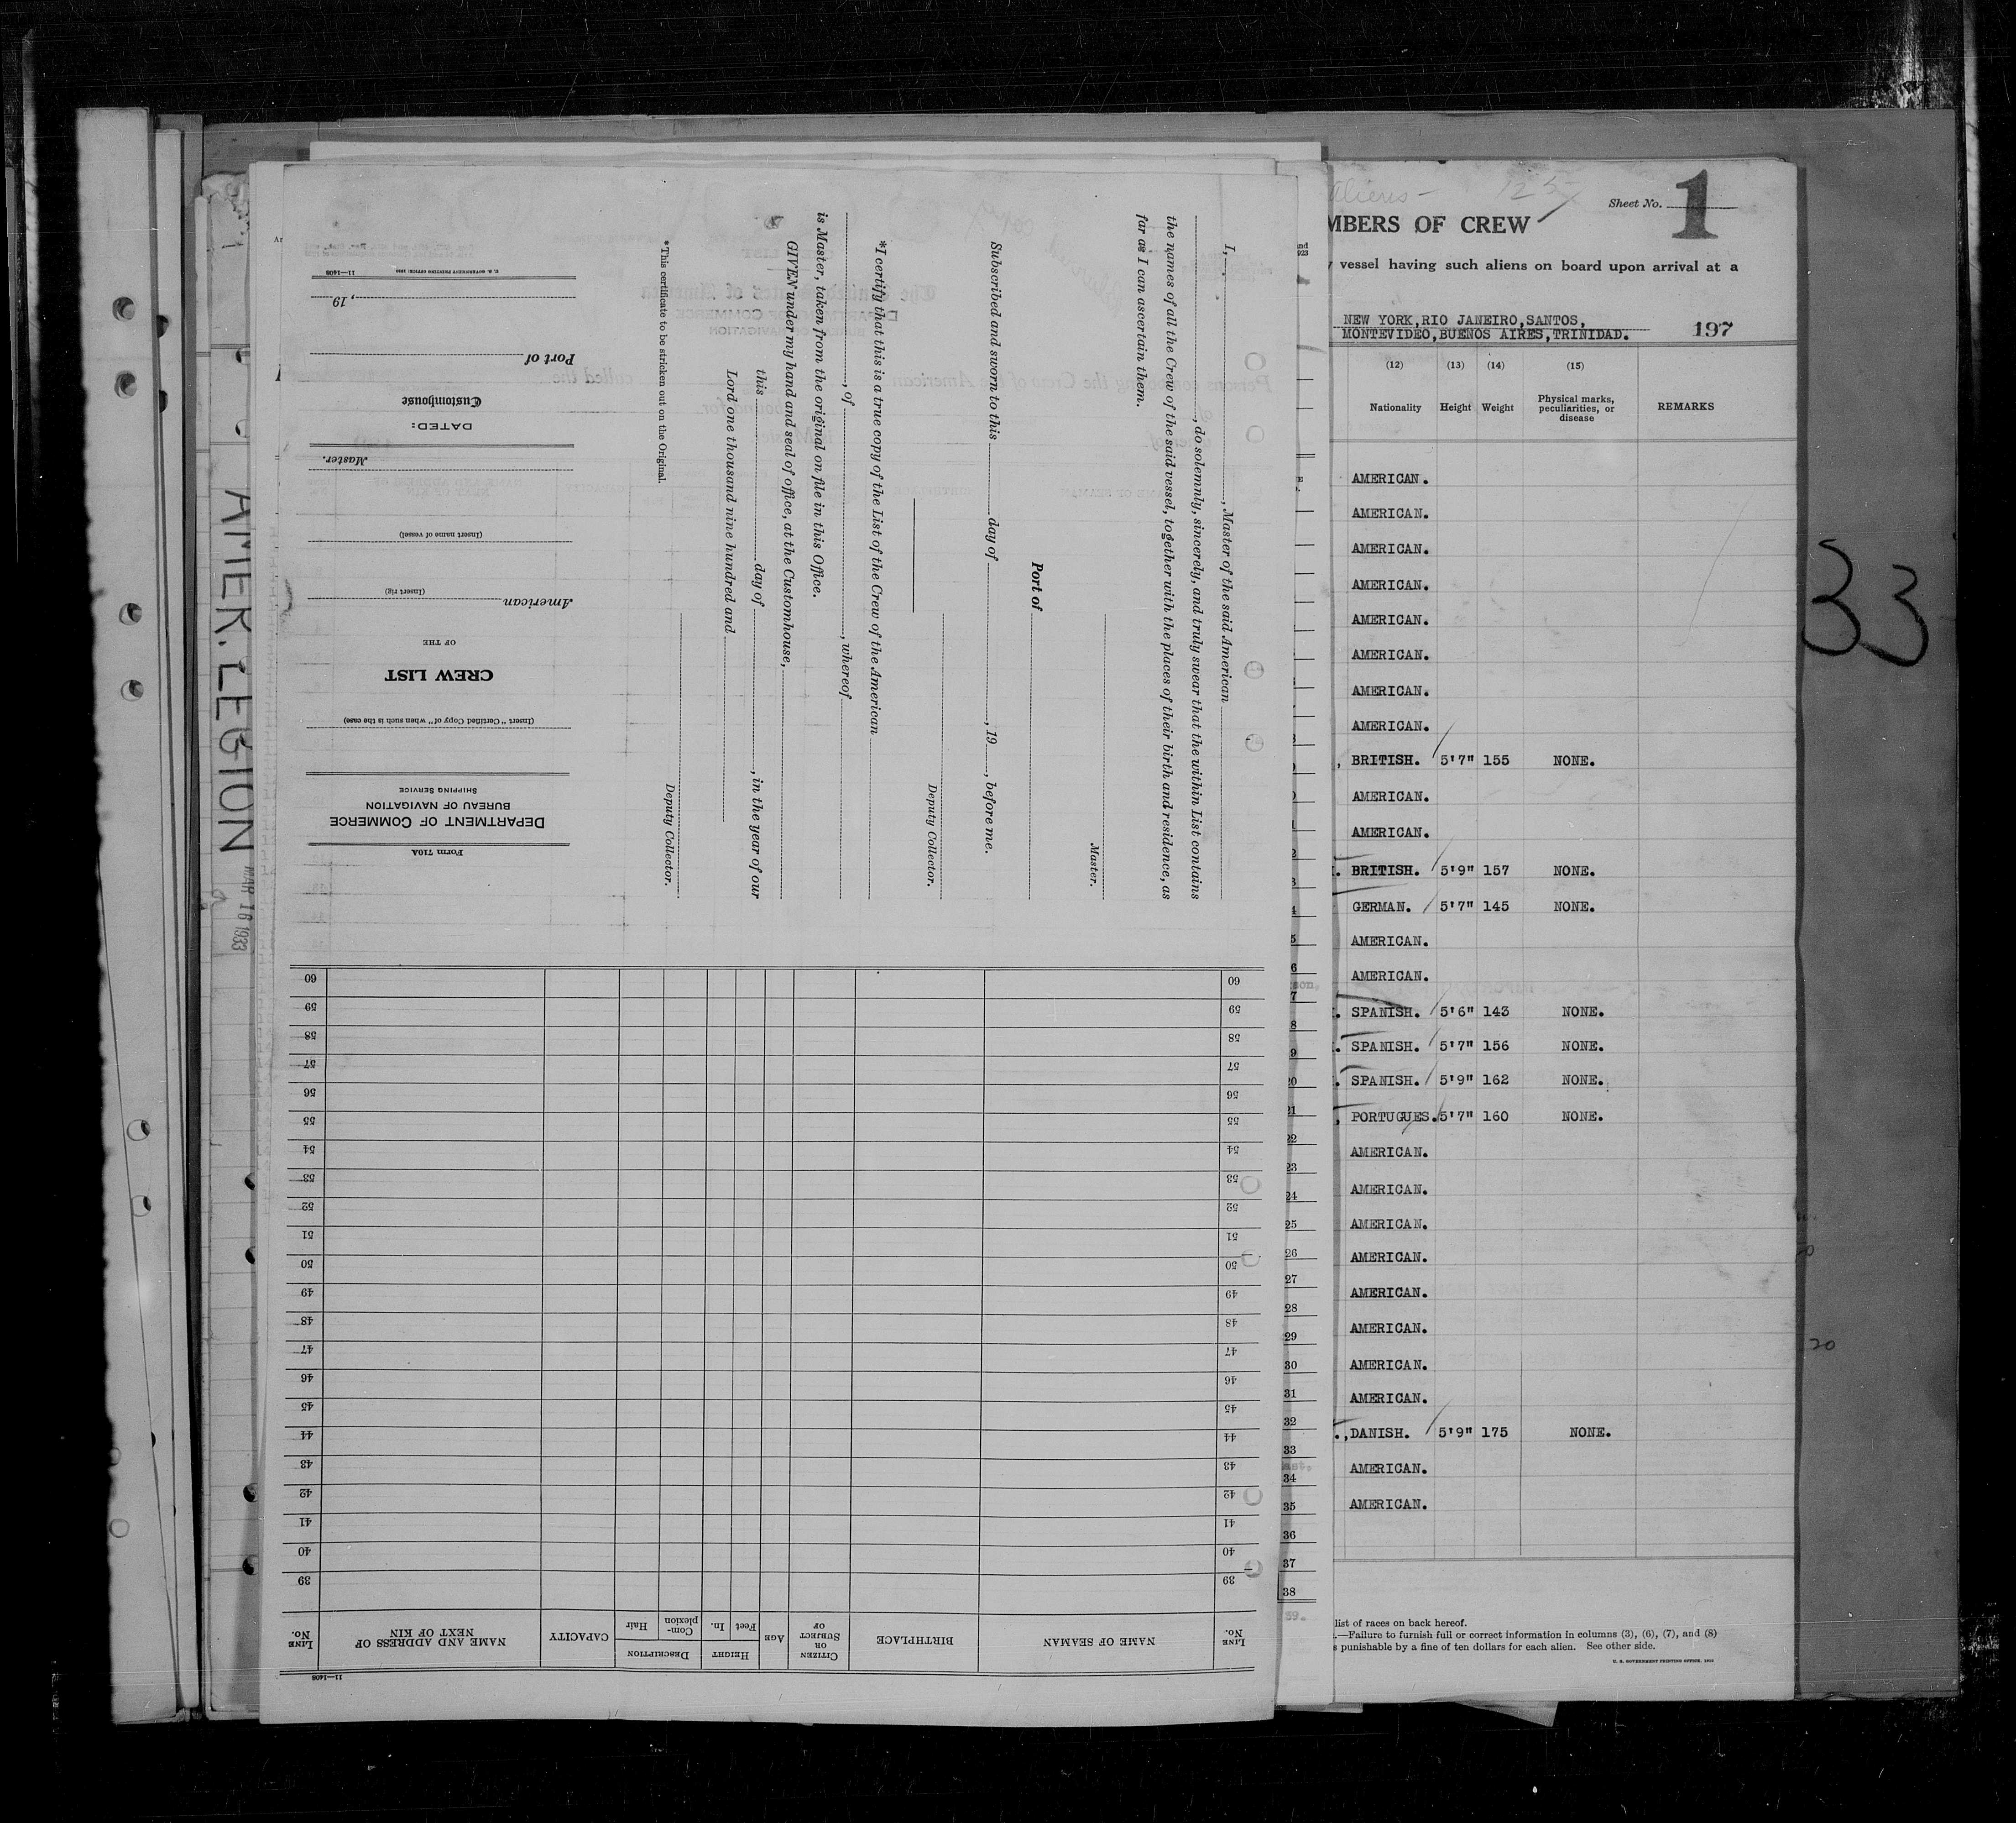 AMER. LEGION MAR 16 1933
I, , Master of the said American
, do solemnly, sincerely, and truly swear that the within List contains
the names of all the Crew of the said vessel, together with the places of their birth and residence, as
far as I can ascertain them.
Master.
Port of
Subscribed and sworn to this day of , 19 , before me.
Deputy Collector.
*I certify that this is a true copy of the List of the Crew of the American
, of , whereof
is Master, taken from the original on file in this Office.
GIVEN under my hand and seal of office, at the Customhouse,
this day of , in the year of our
Lord one thousand nine hundred and
Deputy Collector.
*This certificate to be stricken out on the Original.
Form 710A
DEPARTMENT OF COMMERCE
BUREAU OF NAVIGATION
SHIPPING SERVICE
(Insert "Certified Copy of" when such is the case)
CREW LIST
OF THE
American
(Insert rig)
(Insert name of vessel)
Master.
DATED:
Customhouse
Port of
, 19
U. S. GOVERNMENT PRINTING OFFICE: 11—1408
11—1408
LINE No. NAME OF SEAMAN BIRTHPLACE CITIZEN OR SUBJECT OF AGE HEIGHT Feet In. DESCRIPTION Com- plexion Hair CAPACITY NAME AND ADDRESS OF NEXT OF KIN LINE No.
39 39
40 40
41 41
42 42
43 43
44 44
45 45
46 46
47 47
48 48
49 49
50 50
51 51
52 52
53 53
54 54
55 55
56 56
57 57
58 58
59 59
60 60
22
23
24
25
26
27
28
29
30
31
32
33
34
35
36
37
38
Aliens— 125
Sheet No. 1
MBERS OF CREW
vessel having such aliens on board upon arrival at a
NEW YORK,RIO JANEIRO,SANTOS,
MONTEVIDEO,BUENOS AIRES,TRINIDAD. 197
(12) (13) (14) (15)
Nationality Height Weight Physical marks, peculiarities, or disease REMARKS
AMERICAN.
AMERICAN.
AMERICAN.
AMERICAN.
AMERICAN.
AMERICAN.
AMERICAN.
AMERICAN.
BRITISH. 5'7" 155 NONE.
AMERICAN.
AMERICAN.
BRITISH. 5'9" 157 NONE.
GERMAN. 5'7" 145 NONE.
AMERICAN.
AMERICAN.
SPANISH. 5'6" 143 NONE.
SPANISH. 5'7" 156 NONE.
SPANISH. 5'9" 162 NONE.
PORTUGUES. 5'7" 160 NONE.
AMERICAN.
AMERICAN.
AMERICAN.
AMERICAN.
AMERICAN.
AMERICAN.
AMERICAN.
AMERICAN.
DANISH. 5'9" 175 NONE.
AMERICAN.
AMERICAN.
list of races on back hereof.
—Failure to furnish full or correct information in columns (3), (6), (7), and (8)
s punishable by a fine of ten dollars for each alien. See other side.
U. S. GOVERNMENT PRINTING OFFICE.
33
20